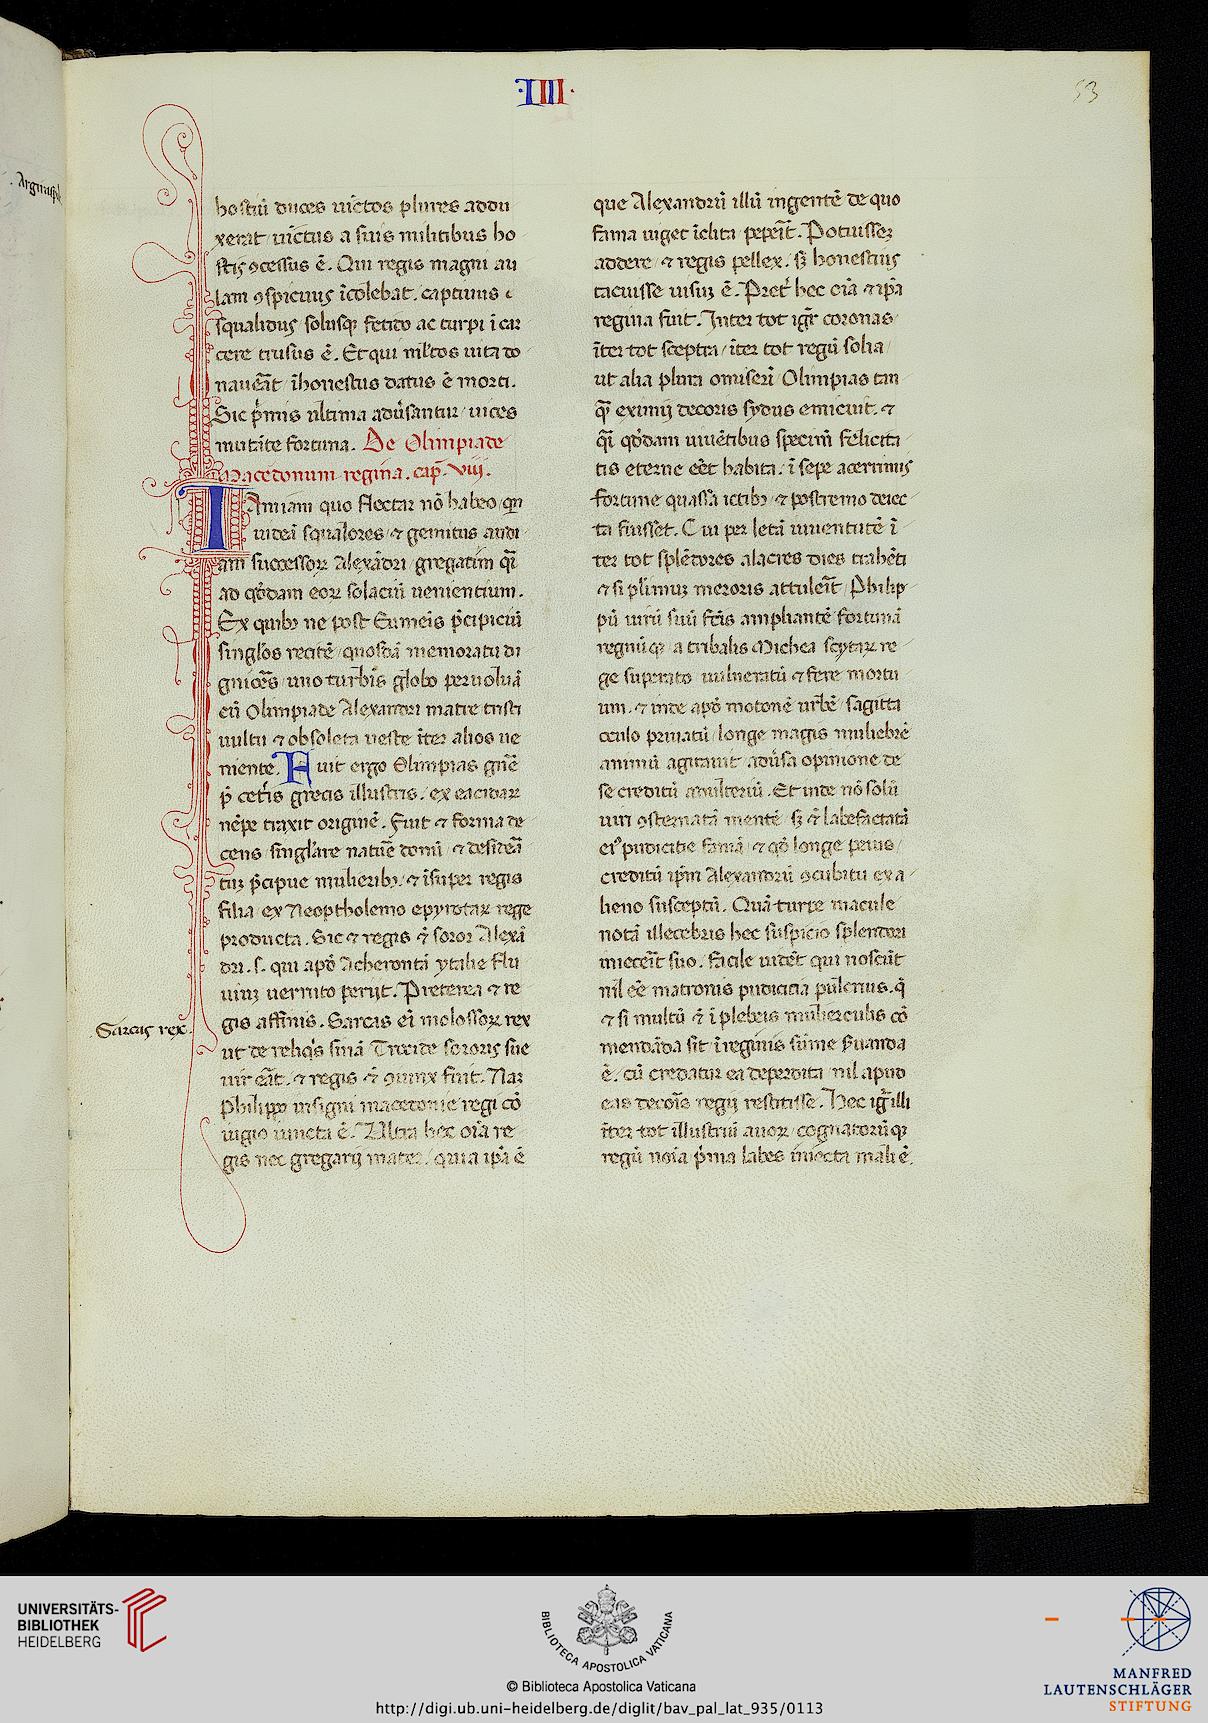 ·IIII·
53
Argiraspi
hostiū duces uīctos plures addu
xerat uīctus a suis militibus ho
stiƺ ꝯcessus ē. Qui regis magni au
lam ꝯspicuus īcolebat. captiuus ⁊
squalidus solusqꝫ fetido ac turpi ī car
cere trusus ē. Et qui mĺtos uita do
nauēāt īhonestus datus ē morti.
Sic p̄mis ultima adūsantur uices
mutāte fortuna. De Olimpiade
Macedonum regina. cap̄. viij.
Iamiam quo flectar nō habeo. qm̄
uideā squalores ⁊ gemitus audi
am successoꝝ Alexādri gregatim q̄i
ad qōdam eoꝝ solaciū uenientium.
Ex quibꝫ ne post Eumeīs p̄cipiciū
singĺos recitē quosdā memoratu di
gniores uno turbīs globo peruoluā
cū Olimpiade Alexandri matre tristi
uultu ⁊ obsoleta ueste īter alios ue
niente. Fuit ergo Olimpias gn̄e
p̄ cet̄is grecis illustris. ex eacidaꝝ
nēpe traxit originē. Fuit ⁊ forma de
cens singĺare natūe donū ⁊ desideā
tiꝫ p̄cipue mulieribꝫ. ⁊ īsuper regis
filia ex Neoptholemo epyrotaꝝ rege
producta. Sic ⁊ regis ē soror Alexā
dri .s. qui apđ Acherontā ytalie flu
uiuꝫ uerruto perijt. Preterea ⁊ re
gis affinis. Sarcas ei molossoꝝ rex
Sarcas rex.
ut de reliq̄s sinā Troade sororis sue
uir eāt. ⁊ regis ē ꝯiunx fuit. Naꝫ
Philippo insigni macedonie regi cō
iugio iuncta ē. Ultra hec oīa re
gis nec gregarij mater. quia ip̄a ē
que Alexandrū illū ingentē de quo
fama uiget īclita pepeīt. Potuisseꝫ
addere ⁊ regis pellex. sꝫ honestius
tacuisse uisuꝫ ē. Pret̄ hec oīa ⁊ ip̄a
regina fuit. Inter tot igr̄ coronas
īter tot sceptra īter tot regū solia
ut alia plura omiserī Olimpias tan
q̄ʒ eximij decoris sydus emicuit. ⁊
q̄i qōdam uiuētibus specīm felicita
tis eterne eēt habita. ī sepe acerrimis
fortune quassa ictibꝫ ⁊ postremo deiec
ta fuisset. Cui per letā iuuentutē ī
ter tot splēdores alacres dies trahēti
⁊ si pĺimuꝫ meroris attuleīt Philip
pū uirū suū fc̄is ampliantē fortunā
regnūqꝫ a tribalis Michea scytaꝝ re
ge superato uulneratū ⁊ fere mortu
um. ⁊ inde apđ motonē urbē sagitta
oculo priuatū longe magis muliebrē
animū agitauit adūsa opinione de
se creditū adulteriū. Et inde nō solū
uiri ꝯsternatā mentē sꝫ ⁊ labefactatā
eiꝰ pudicitie famā ⁊ qđ longe peius
creditū ip̄m Alexandrū ꝯcubitu ex a
lieno susceptū. Quā turpe macule
notā illecebris hec suspicio splendori
iniecēīt suo. facile uidēt qui noscūt
nil eē matronis pudicicia pulcrius. q̄
⁊ si multū ē ī plebeis mulierculis cō
mendāda sit ī reginis sūme ẜuanda
ē. cū credatur ea deperdita nil apud
eas decoīs regij restitisse. Hec igr̄ illi
īter tot illustriū auoꝝ cognatorūqꝫ
regū noīa p̄ma labes īuiēcta mali ē.
UNIVERSITÄTS-
BIBLIOTHEK
HEIDELBERG
BIBLIOTECA APOSTOLICA VATICANA
© Biblioteca Apostolica Vaticana
http://digi.ub.uni-heidelberg.de/diglit/bav_pal_lat_935/0113
MANFRED
LAUTENSCHLÄGER
STIFTUNG